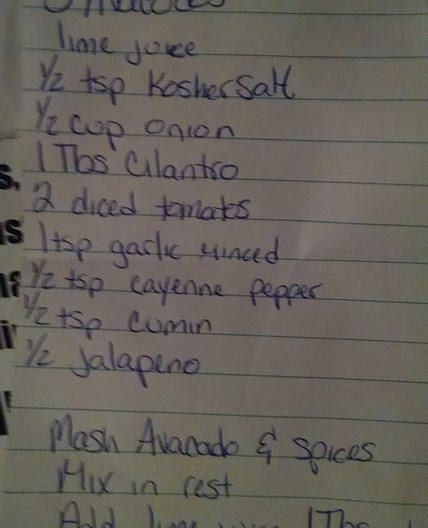 lime joice
1/2 tsp Kosher Salt
1/2 cup onion
1 Tbs Cilantro
2 diced tomatos
1 tsp garlic minced
1/2 tsp cayenne pepper
1/2 tsp Cumin
1/2 Jalapeno
Mash Avacado & spices
Mix in rest
Add 1 Tbs